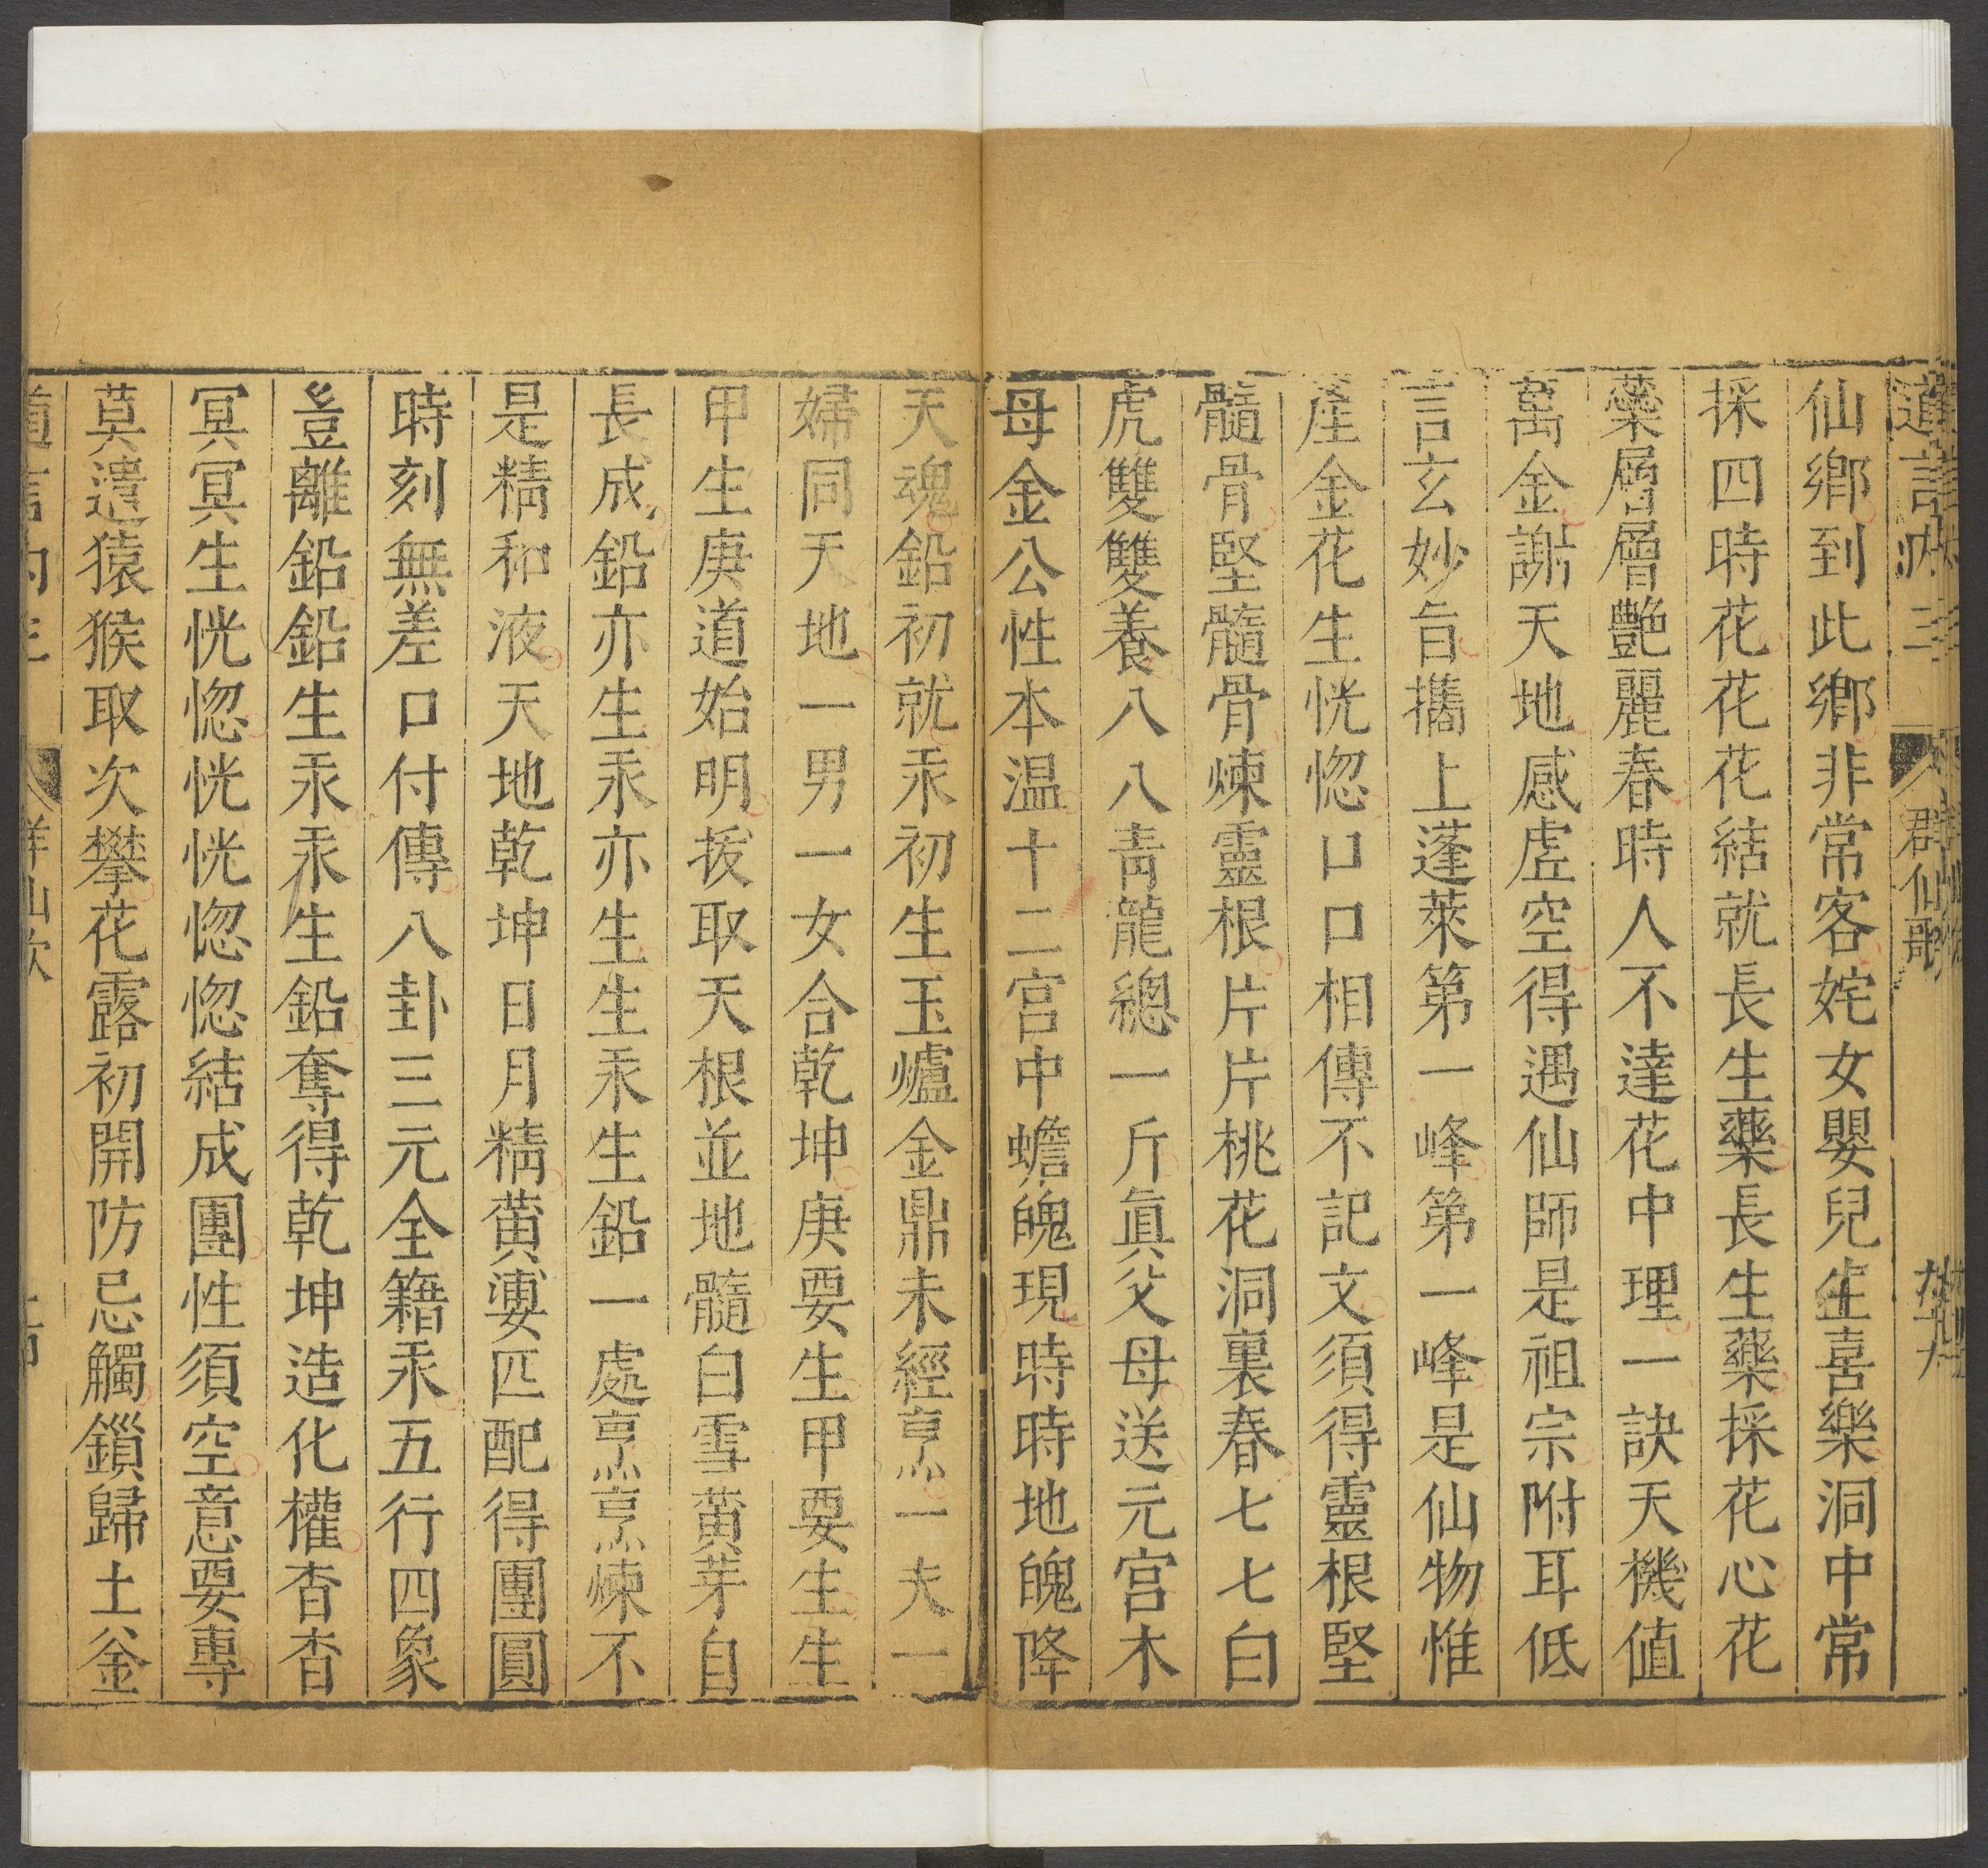 道言內 三 群仙歌
仙鄉到此鄉非常客姹女嬰兒生喜樂洞中常
採四時花花花結就長生藥長生藥採花心花
蘂層層艷麗春時人不達花中理一訣天機値
萬金謝天地感虛空得遇仙師是祖宗附耳低
言玄妙旨攜上蓬萊第一峰第一峰是仙物惟
產金花生恍惚口口相傳不記文須得靈根堅
髓骨堅髓骨煉靈根片片桃花洞裏春七七白
虎雙雙養八八靑龍總一斤眞父母送元宮木
母金公性本温十二宮中蟾魄現時時地魄降
天魂鉛初就汞初生玉爐金鼎未經烹一夫一
婦同天地一男一女合乾坤庚要生甲要生生
甲生庚道始明拔取天根並地髓白雪黃芽自
長成鉛亦生汞亦生生汞生鉛一處烹烹煉不
是精和液天地乾坤日月精黃婆匹配得團圓
時刻無差口付傳八卦三元全籍汞五行四象
豈離鉛鉛生汞汞生鉛奪得乾坤造化權杳杳
冥冥生恍惚恍恍惚惚結成團性須空意要專
莫遣猿猴取次攀花露初開防忌觸鎖歸土釜
道言內 群仙歌